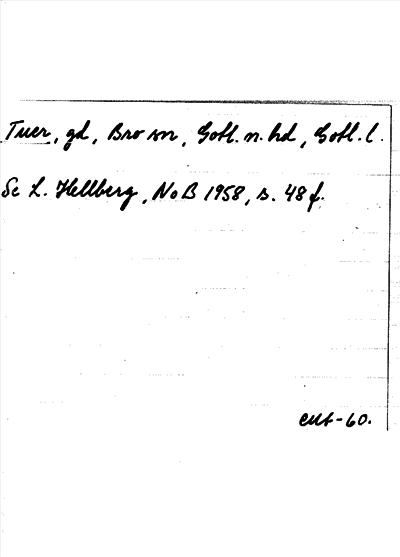 Tuer, gd, Bro sn, Gotl. n. hd, Gotl. l.
Se L. Hellberg, NoB 1958, s. 48 f.
-60.